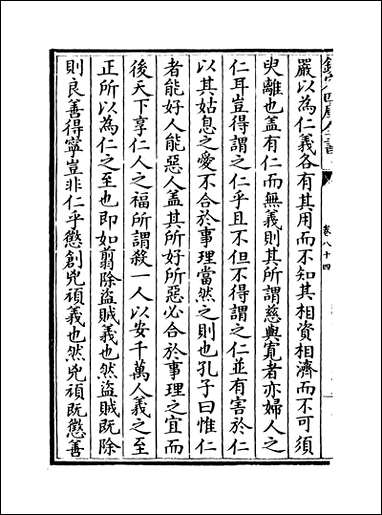 嚴以為仁義各有其用而不知其相資相濟而不可須
臾離也蓋有仁而無義則其所謂慈與寛者亦婦人之
仁耳豈得謂之仁乎且不但不得謂之仁並有害於仁
以其姑息之愛不合於事理當然之則也孔子曰惟仁
者能好人能惡人蓋其所好所惡必合於事理之宜而
後天下享仁人之福所謂殺一人以安千萬人義之至
正所以為仁之至也即如翦除盜賊義也然盜賊既除
則良善得寧豈非仁乎懲創兇頑義也然兇頑既懲善
卷八十四